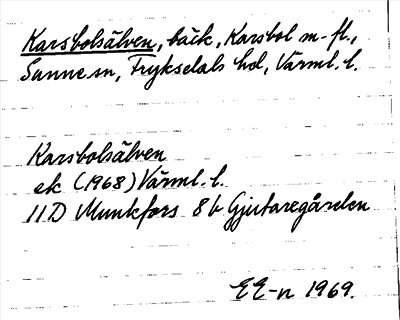 Karsbolsälven, bäck, Karsbol m. fl.,
Sunne sn, Fryksdals hd, Värml. l.
Karsbolsälven
ek (1968) Värml. l.
11D Munkfors 8 b Gjutaregården
EE-n 1969.